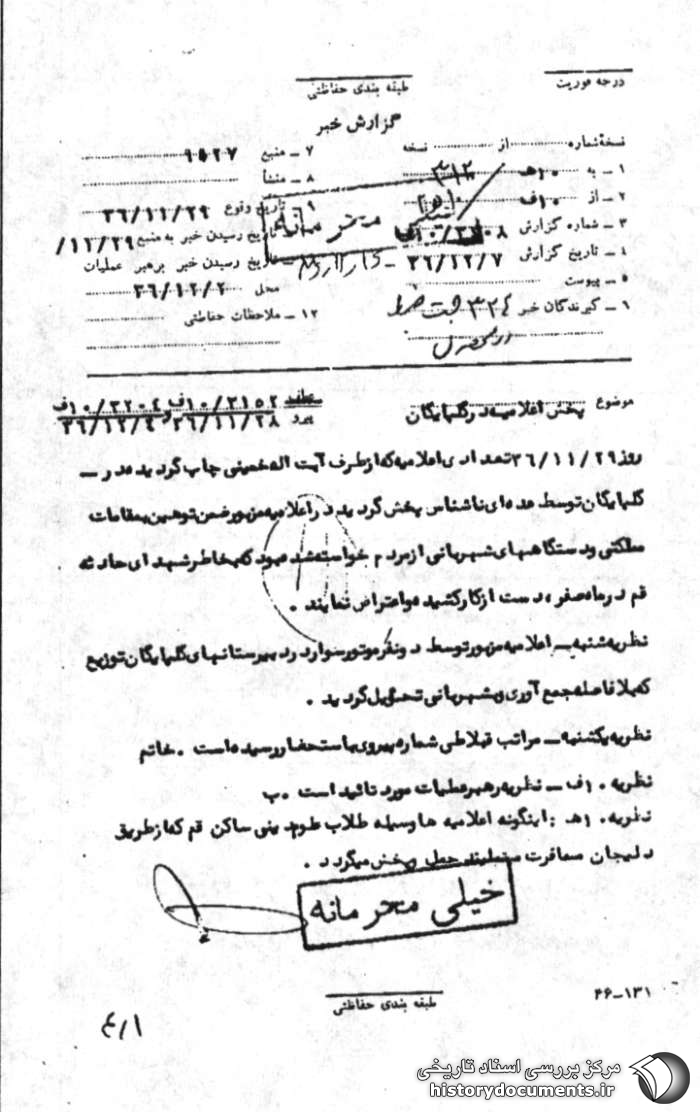 درجه فوریت
طبقه بندی حفاظتی
گزارش خبر
نسخه شماره از نسخه
۱ - به ۱۰هـ ۳۱۲
۲ - از ۱۰ف
۳ - شماره گزارش
۴ - تاریخ گزارش ۳۶/۱۲/۷
۵ - پیوست
۶ - گیرندگان خبر ۳۲۴
۷ - منبع
۸ - منشأ
۹ - تاریخ وقوع ۳۶/۱۱/۲۹
تاریخ رسیدن خبر به منبع ۱۱/۲۹/
تاریخ رسیدن خبر برهبر عملیات
محل ۳۶/۱۲/۲
۱۲ - ملاحظات حفاظتی
موضوع پخش اعلامیه در گلپایگان
روز ۳۶/۱۱/۲۹ تعدادی اعلامیه که از طرف آیت اله خمینی چاپ گردیده در -
گلپایگان توسط عده ای ناشناس پخش گردید در اعلامیه مزبور ضمن توهین بمقامات
مملکتی و دستگاههای شهربانی از مردم خواسته شده بود که بخاطر شهدای حادثه
قم در ماه صفر دست از کار کشیده و اعتراض نمایند .
نظریه شنبه - اعلامیه مزبور توسط دو نفر موتور سوار در دبیرستانهای گلپایگان توزیع
که بلافاصله جمع آوری و بشهربانی تحویل گردید .
نظریه یکشنبه - مراتب قبلا طی شماره پیروی باستحضار رسیده است . خاتم
نظریه ۱۰ف - نظریه رهبر عملیات مورد تائید است . ب
نظریه ۱۰هـ : اینگونه اعلامیه ها وسیله طلاب علوم دینی ساکن قم که از طریق
دلیجان مسافرت مینمایند حمل و پخش میگردد .
خیلی محرمانه
۴۶-۱۳۱
طبقه بندی حفاظتی
۴/۱
مرکز بررسی اسناد تاریخی
historydocuments.ir